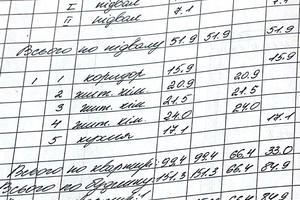 I підвал
II підвал 7.1
Всього по підвалу 51.9 51.9 51.9
1 1 коридор 15.9 15.9
2 жит. кім. 20.9 20.9
3 жит. кім. 21.5 21.5
4 жит. кім. 24.0 24.0
5 кухня 17.1 17.1
Всього по квартирі: 99.4 99.4 66.4 33.0
Всього по будинку: 151.3 151.3 66.4 84.9
84.9